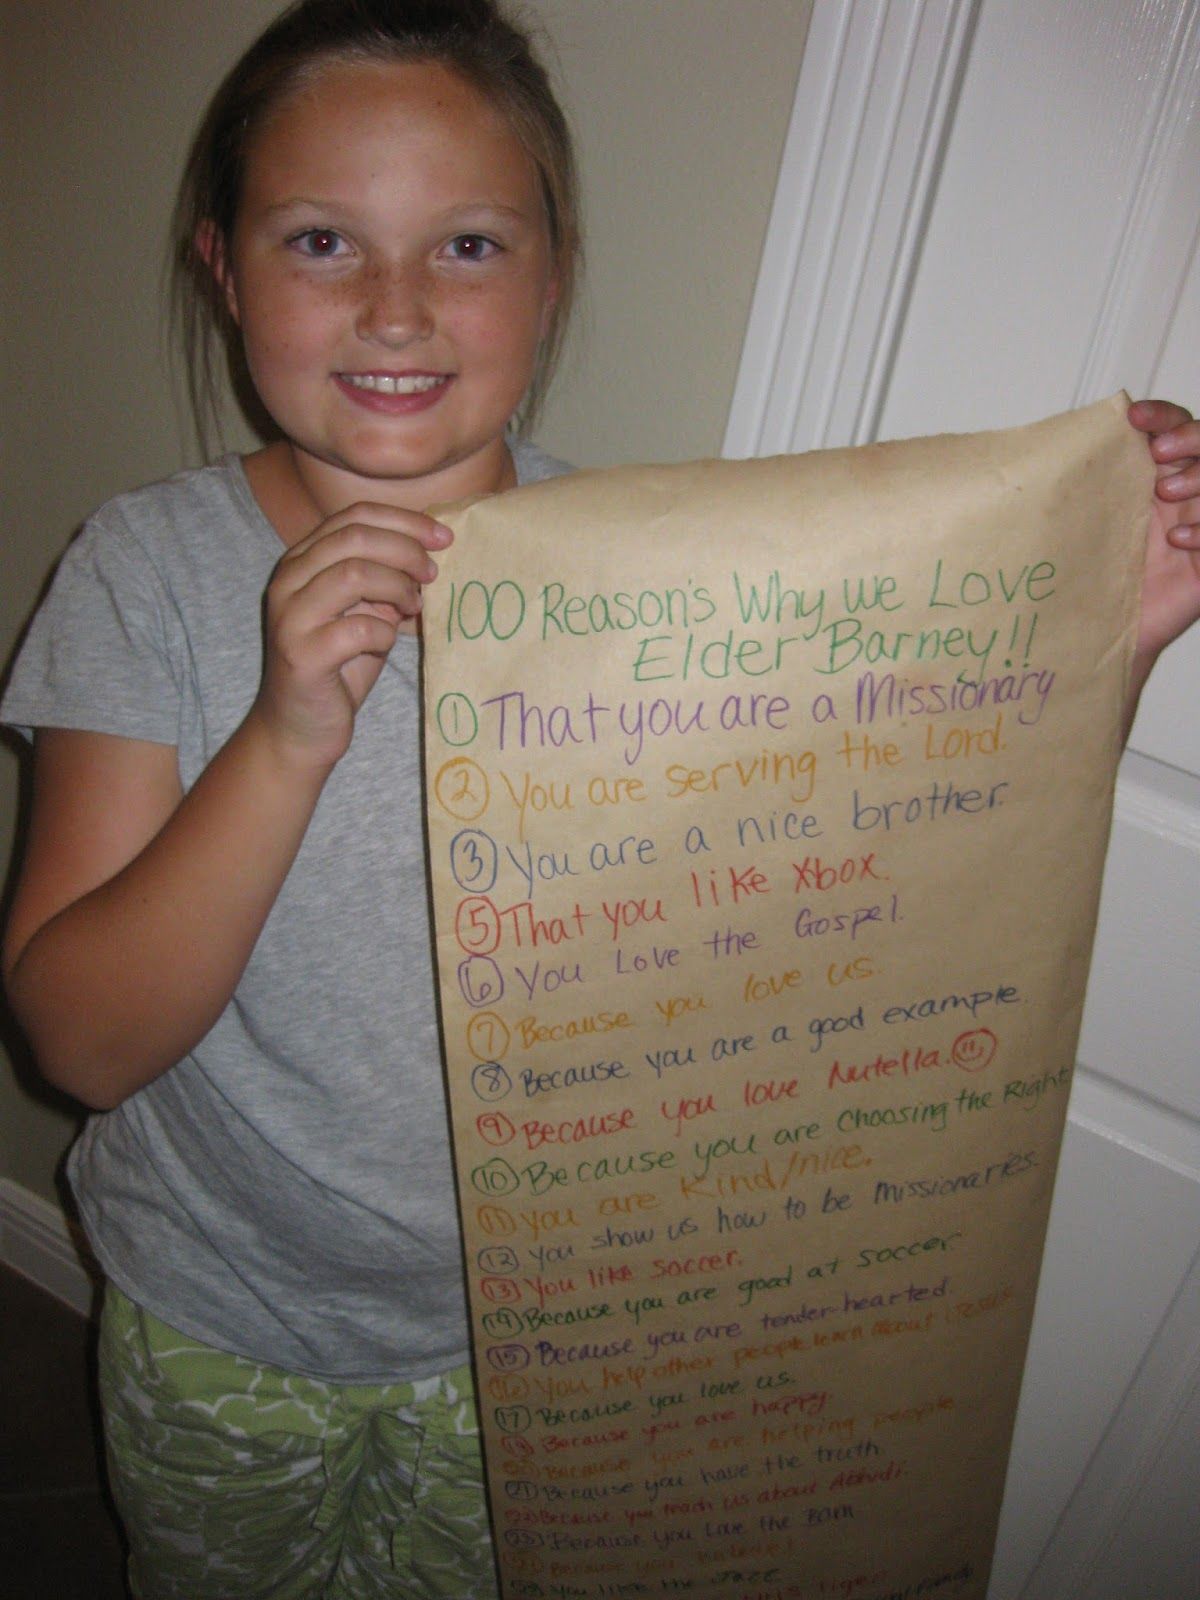 100 Reason's Why we Love
Elder Barney!!
① That you are a Missionary
② You are serving the Lord.
③ You are a nice brother.
⑤ That you like Xbox.
⑥ You Love the Gospel.
⑦ Because you love us.
⑧ Because you are a good example.
⑨ Because you love Nutella. ⑪
⑩ Because you are Choosing the Right
⑪ You are Kind/nice.
⑫ You show us how to be Missionaries.
⑬ You like soccer.
⑭ Because you are good at soccer.
⑮ Because you are tender-hearted.
⑯ You help other people learn about Jesus
⑰ Because you love us.
Because you are happy.
Because you are helping people
㉑ Because you have the truth
㉒ Because you teach us about
㉓ Because you Love the
Because you
You like the Jazz